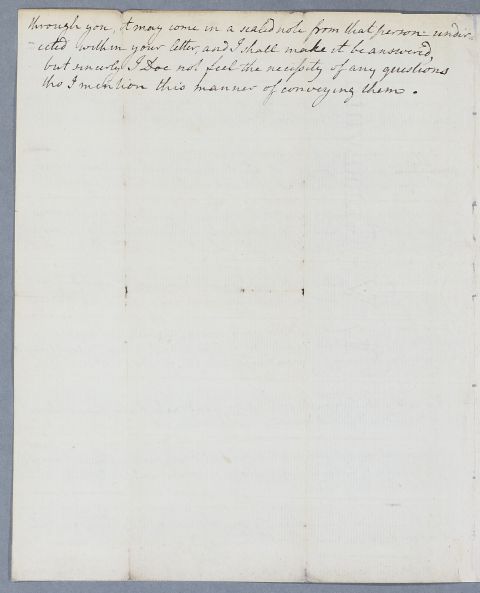 through you, it may come in a sealed note from that person - undir-
-ected within your letter, and I shall make it be answered,
but sincerely I Doe not feel the necessity of any questions
tho I mention this manner of conveying them.